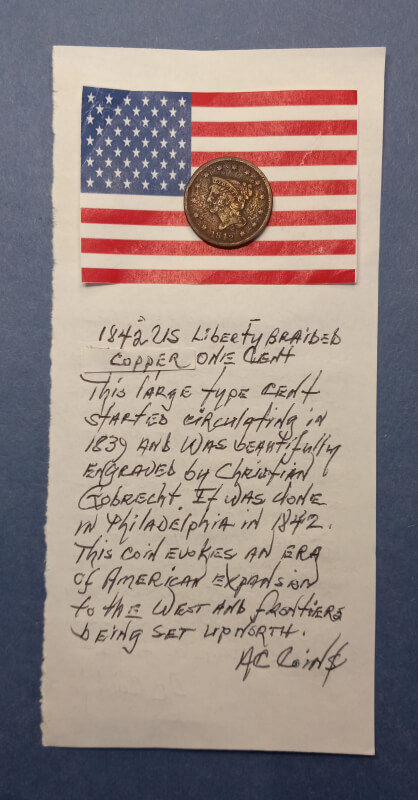 1842 US Liberty Braided
Copper One Cent
This large type cent
started circulating in
1839 and was beautifully
engraved by Christian
Gobrecht. It was done
in Philadelphia in 1842.
This coin evokies an era
of American expansion
to the West and frontiers
being set up North.
AC Coin$